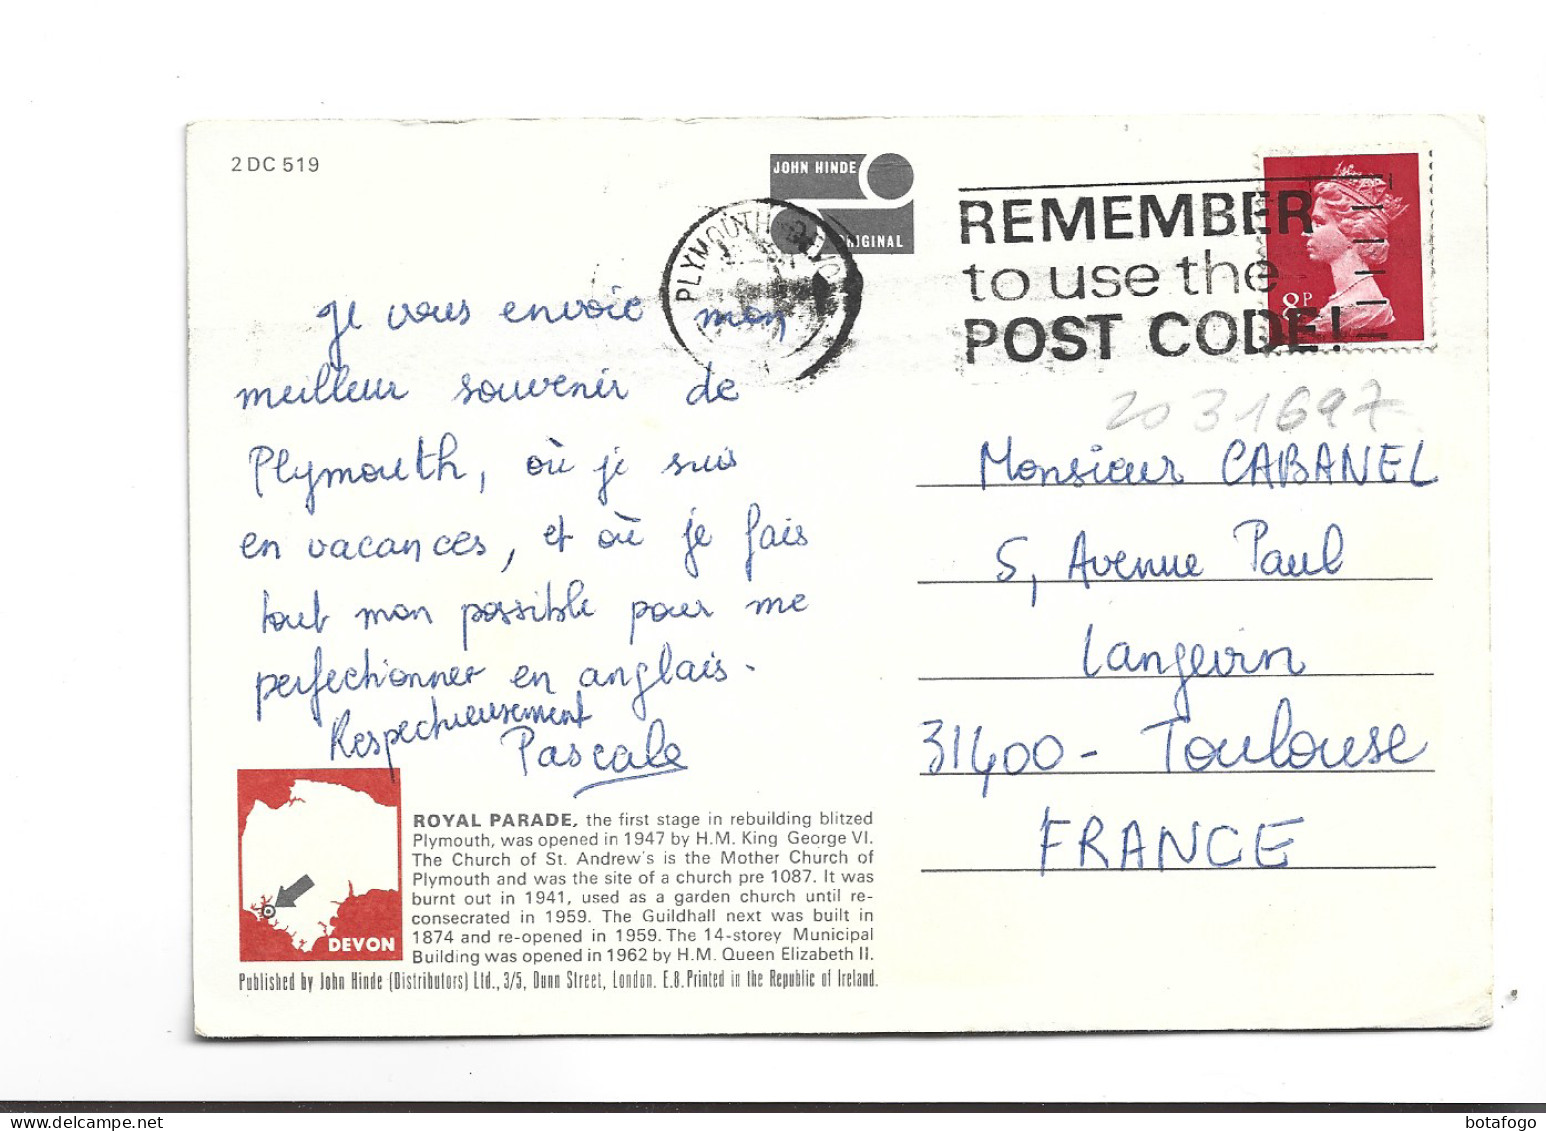 2DC 519
JOHN HINDE
ORIGINAL
PLYMOUTH DEVON
REMEMBER
to use the
POST CODE!
8P
20 31697
Je vous envoie mon
meilleur souvenir de
Plymouth, où je suis
en vacances, et où je fais
tout mon possible pour me
perfectionner en anglais.
Respectueusement
Pascale
Monsieur CABANEL
5, Avenue Paul
Langevin
31400 - Toulouse
FRANCE
DEVON
ROYAL PARADE, the first stage in rebuilding blitzed
Plymouth, was opened in 1947 by H.M. King George VI.
The Church of St. Andrew's is the Mother Church of
Plymouth and was the site of a church pre 1087. It was
burnt out in 1941, used as a garden church until re-
consecrated in 1959. The Guildhall next was built in
1874 and re-opened in 1959. The 14-storey Municipal
Building was opened in 1962 by H.M. Queen Elizabeth II.
Published by John Hinde (Distributors) Ltd., 3/5, Dunn Street, London. E.8. Printed in the Republic of Ireland.
botafogo